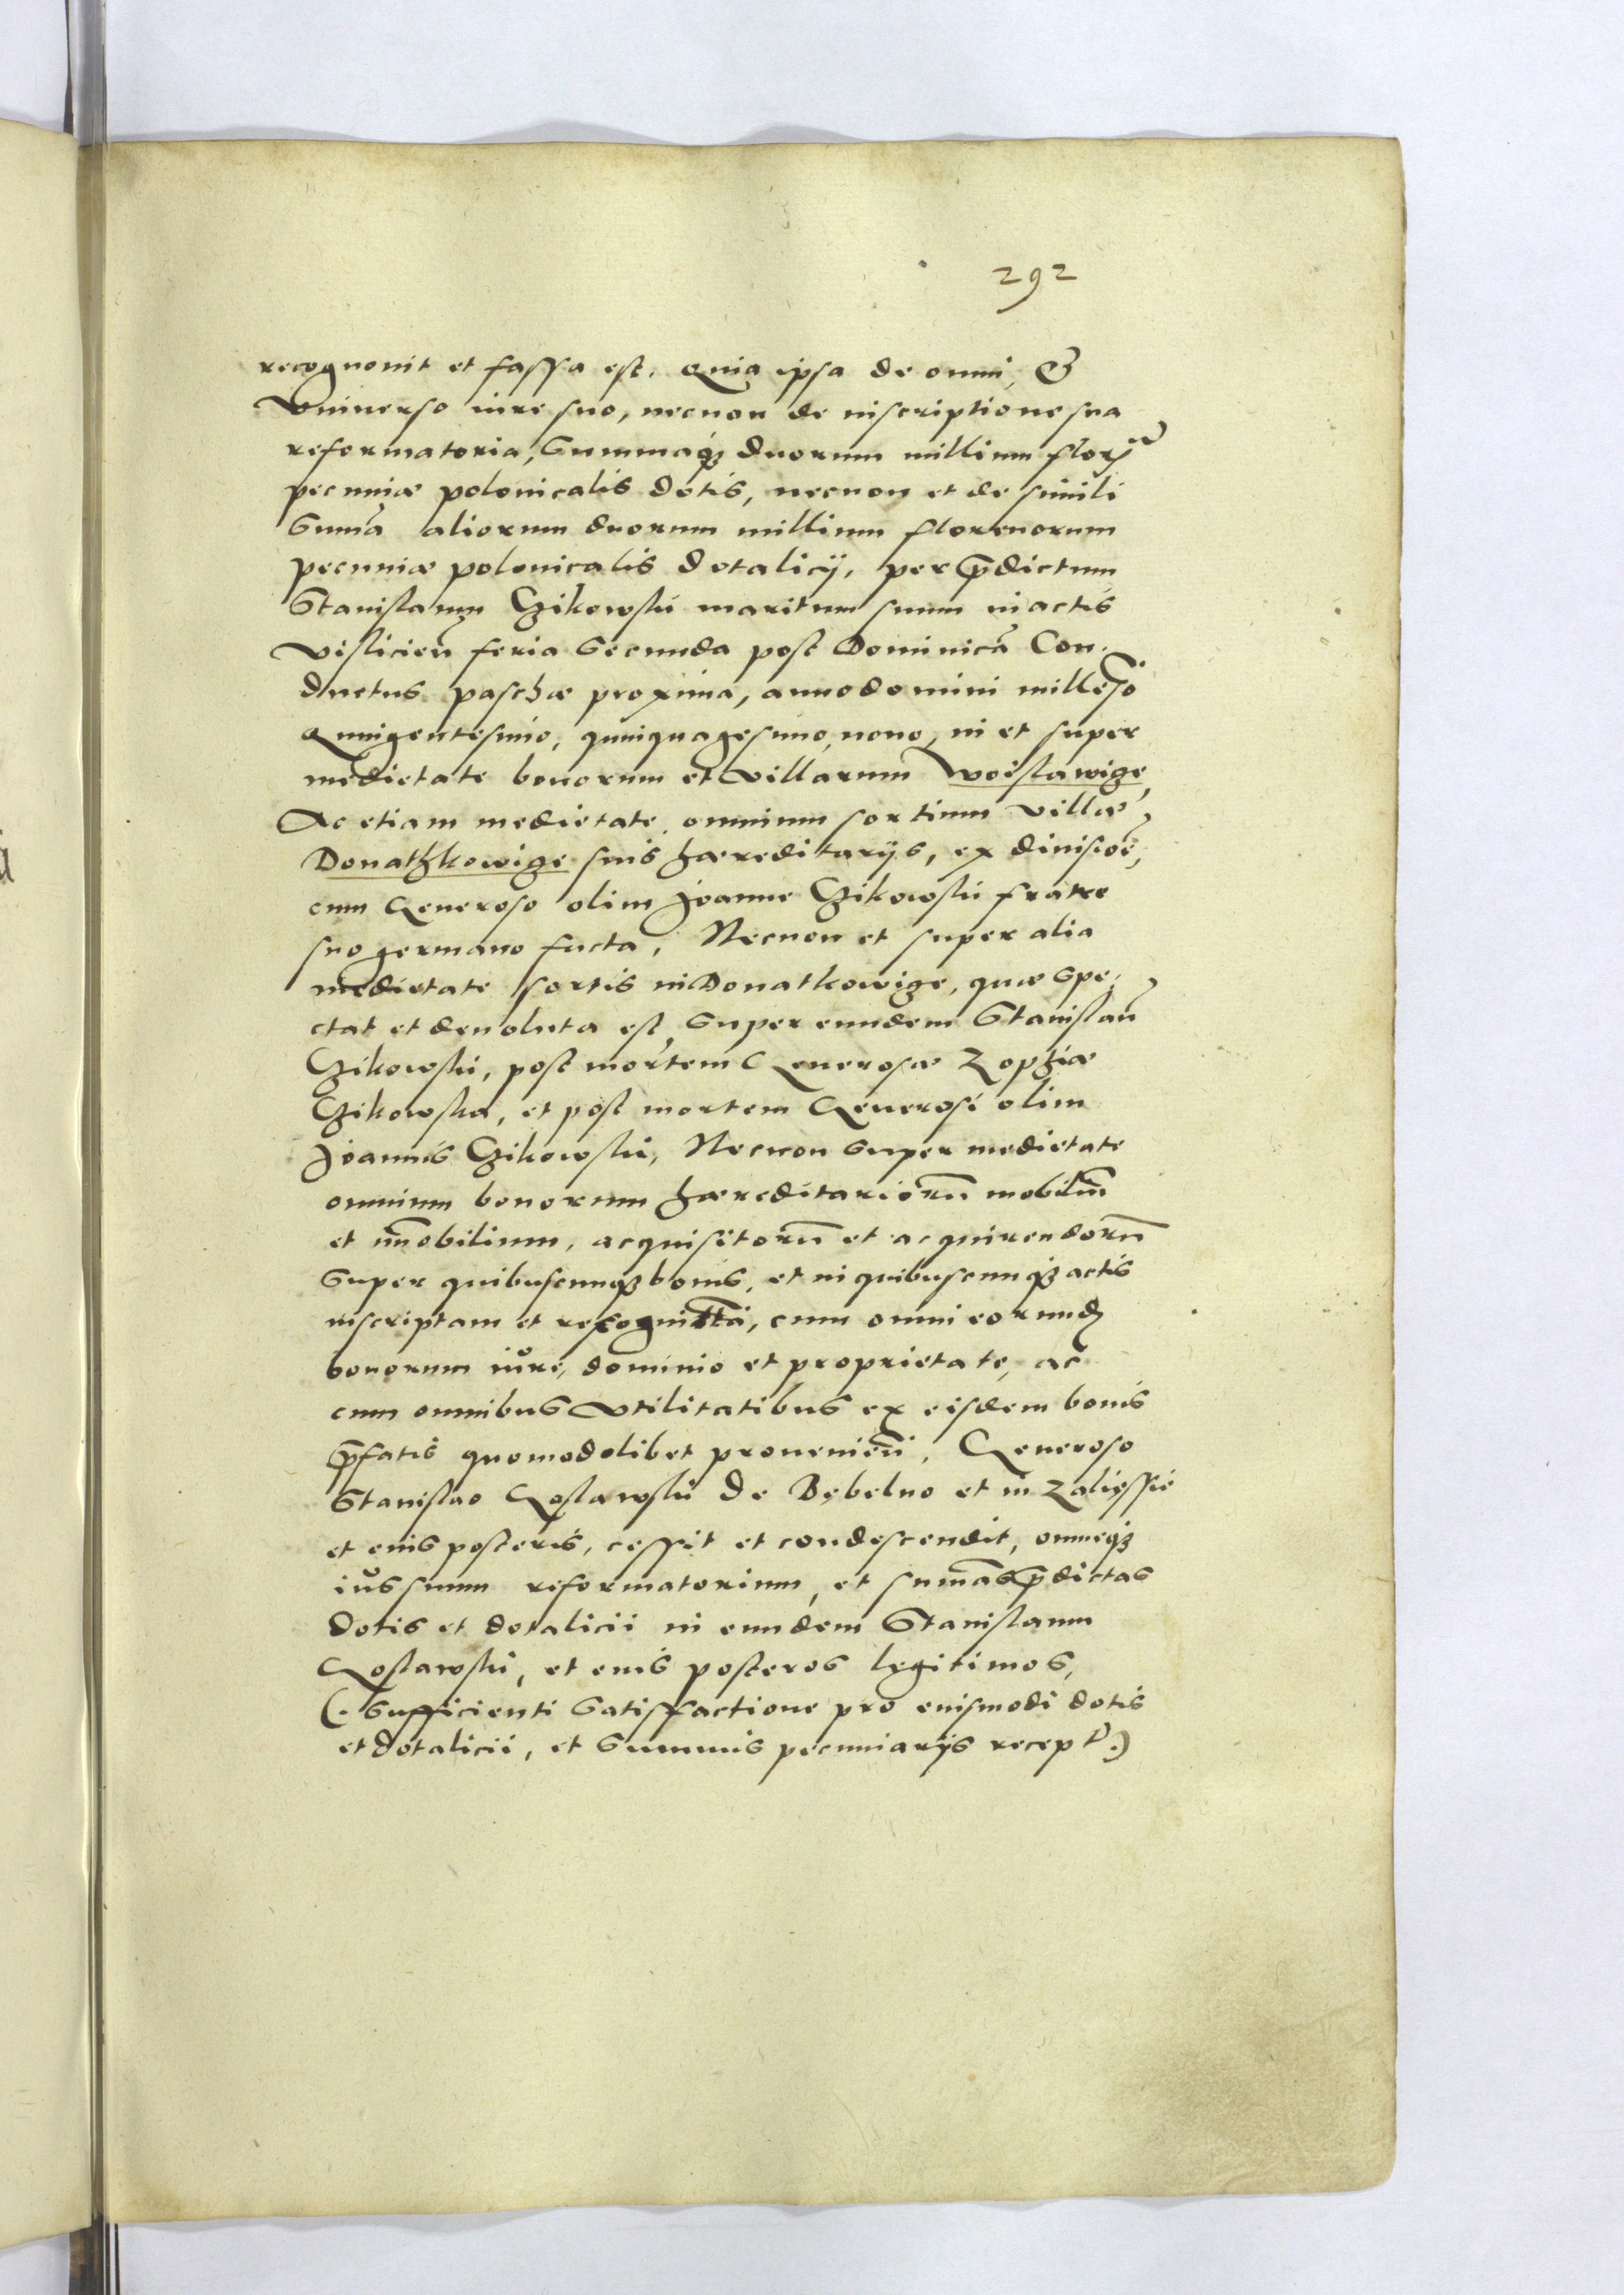 292
recognouit et fassa est. Quia ipsa de omni, &
Vniuerso iure suo, necnon de inscriptione sua
reformatoria, Summaq3 duorum millium flor
pecuniæ polonicalis dotis, necnon et de simili
Sumã aliorum duorum millium florenorum
pecuniæ polonicalis dotalicij, per p̃dictum
Stanislaum Czikowski maritum suum in actis
Visliciеñ feria Secunda post Dominicã Con-
ductus paschæ proxima, anno domini millesõ
Quingentesimo, quinquagesimo nono, in et super
medietate bonorum et villarum Woislawicze,
Ac etiam medietate omnium sortium villæ
Donathkowicze suis hæreditarijs, ex diuisioẽ,
cum Generoso olim Joanne Czikowski fratre
suo germano facta, Necnon et super alia
medietate sortis in Donatkowicze, quæ spe-
ctat et deuoluta est, super eundem Stanislaũ
Czikowski, post mortem Generosæ Zophiæ
Czikowska, et post mortem Generosi olim
Joannis Czikowski, Necnon super medietate
omnium bonorum hæreditariorũ mobiliũ
et im̃obilium, acquisitorũ et acquirendorũ
super quibuscunq3 bonis, et in quibuscunq3 actis
inscriptam et recognitã, cum omni eorund
bonorum iure, dominio et proprietate, ac
cum omnibus vtilitatibus ex eisdem bonis
p̃fatis quomodolibet prouenieñ, Generoso
Stanislao Goslawski de Bębelno et in Zaliessie
et eius posteris, cessit et condescendit, omneq3
ius suum reformatorium, et sum̃as p̃dictas
dotis et dotalicii in eundem Stanislaum
Goslawski, et eius posteros legitimos,
(. Sufficienti Satisfactione pro eiusmodi dotis
et dotalicii, et Summis pecuniarijs recept .)